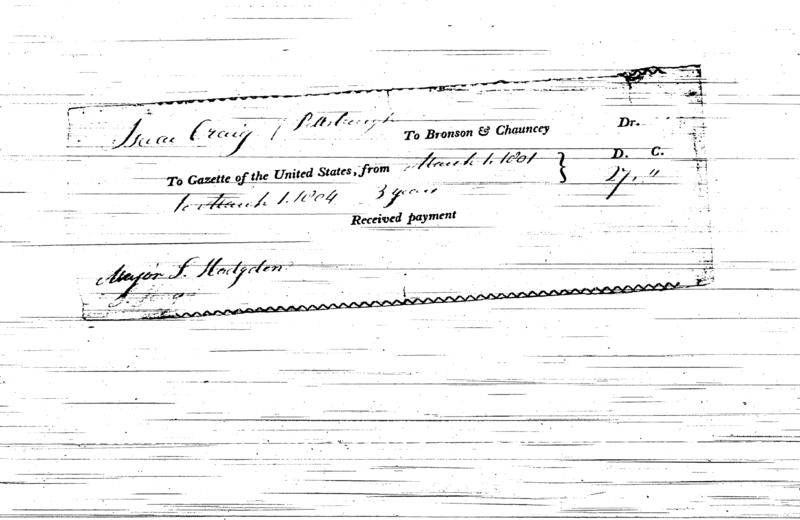 Isaac Craig / Pittsburgh To Bronson & Chauncey Dr.
To Gazette of the United States, from March 1. 1801 } D. C.
to March 1. 1804 3 years 27. "
Received payment
Major S. Hodgdon